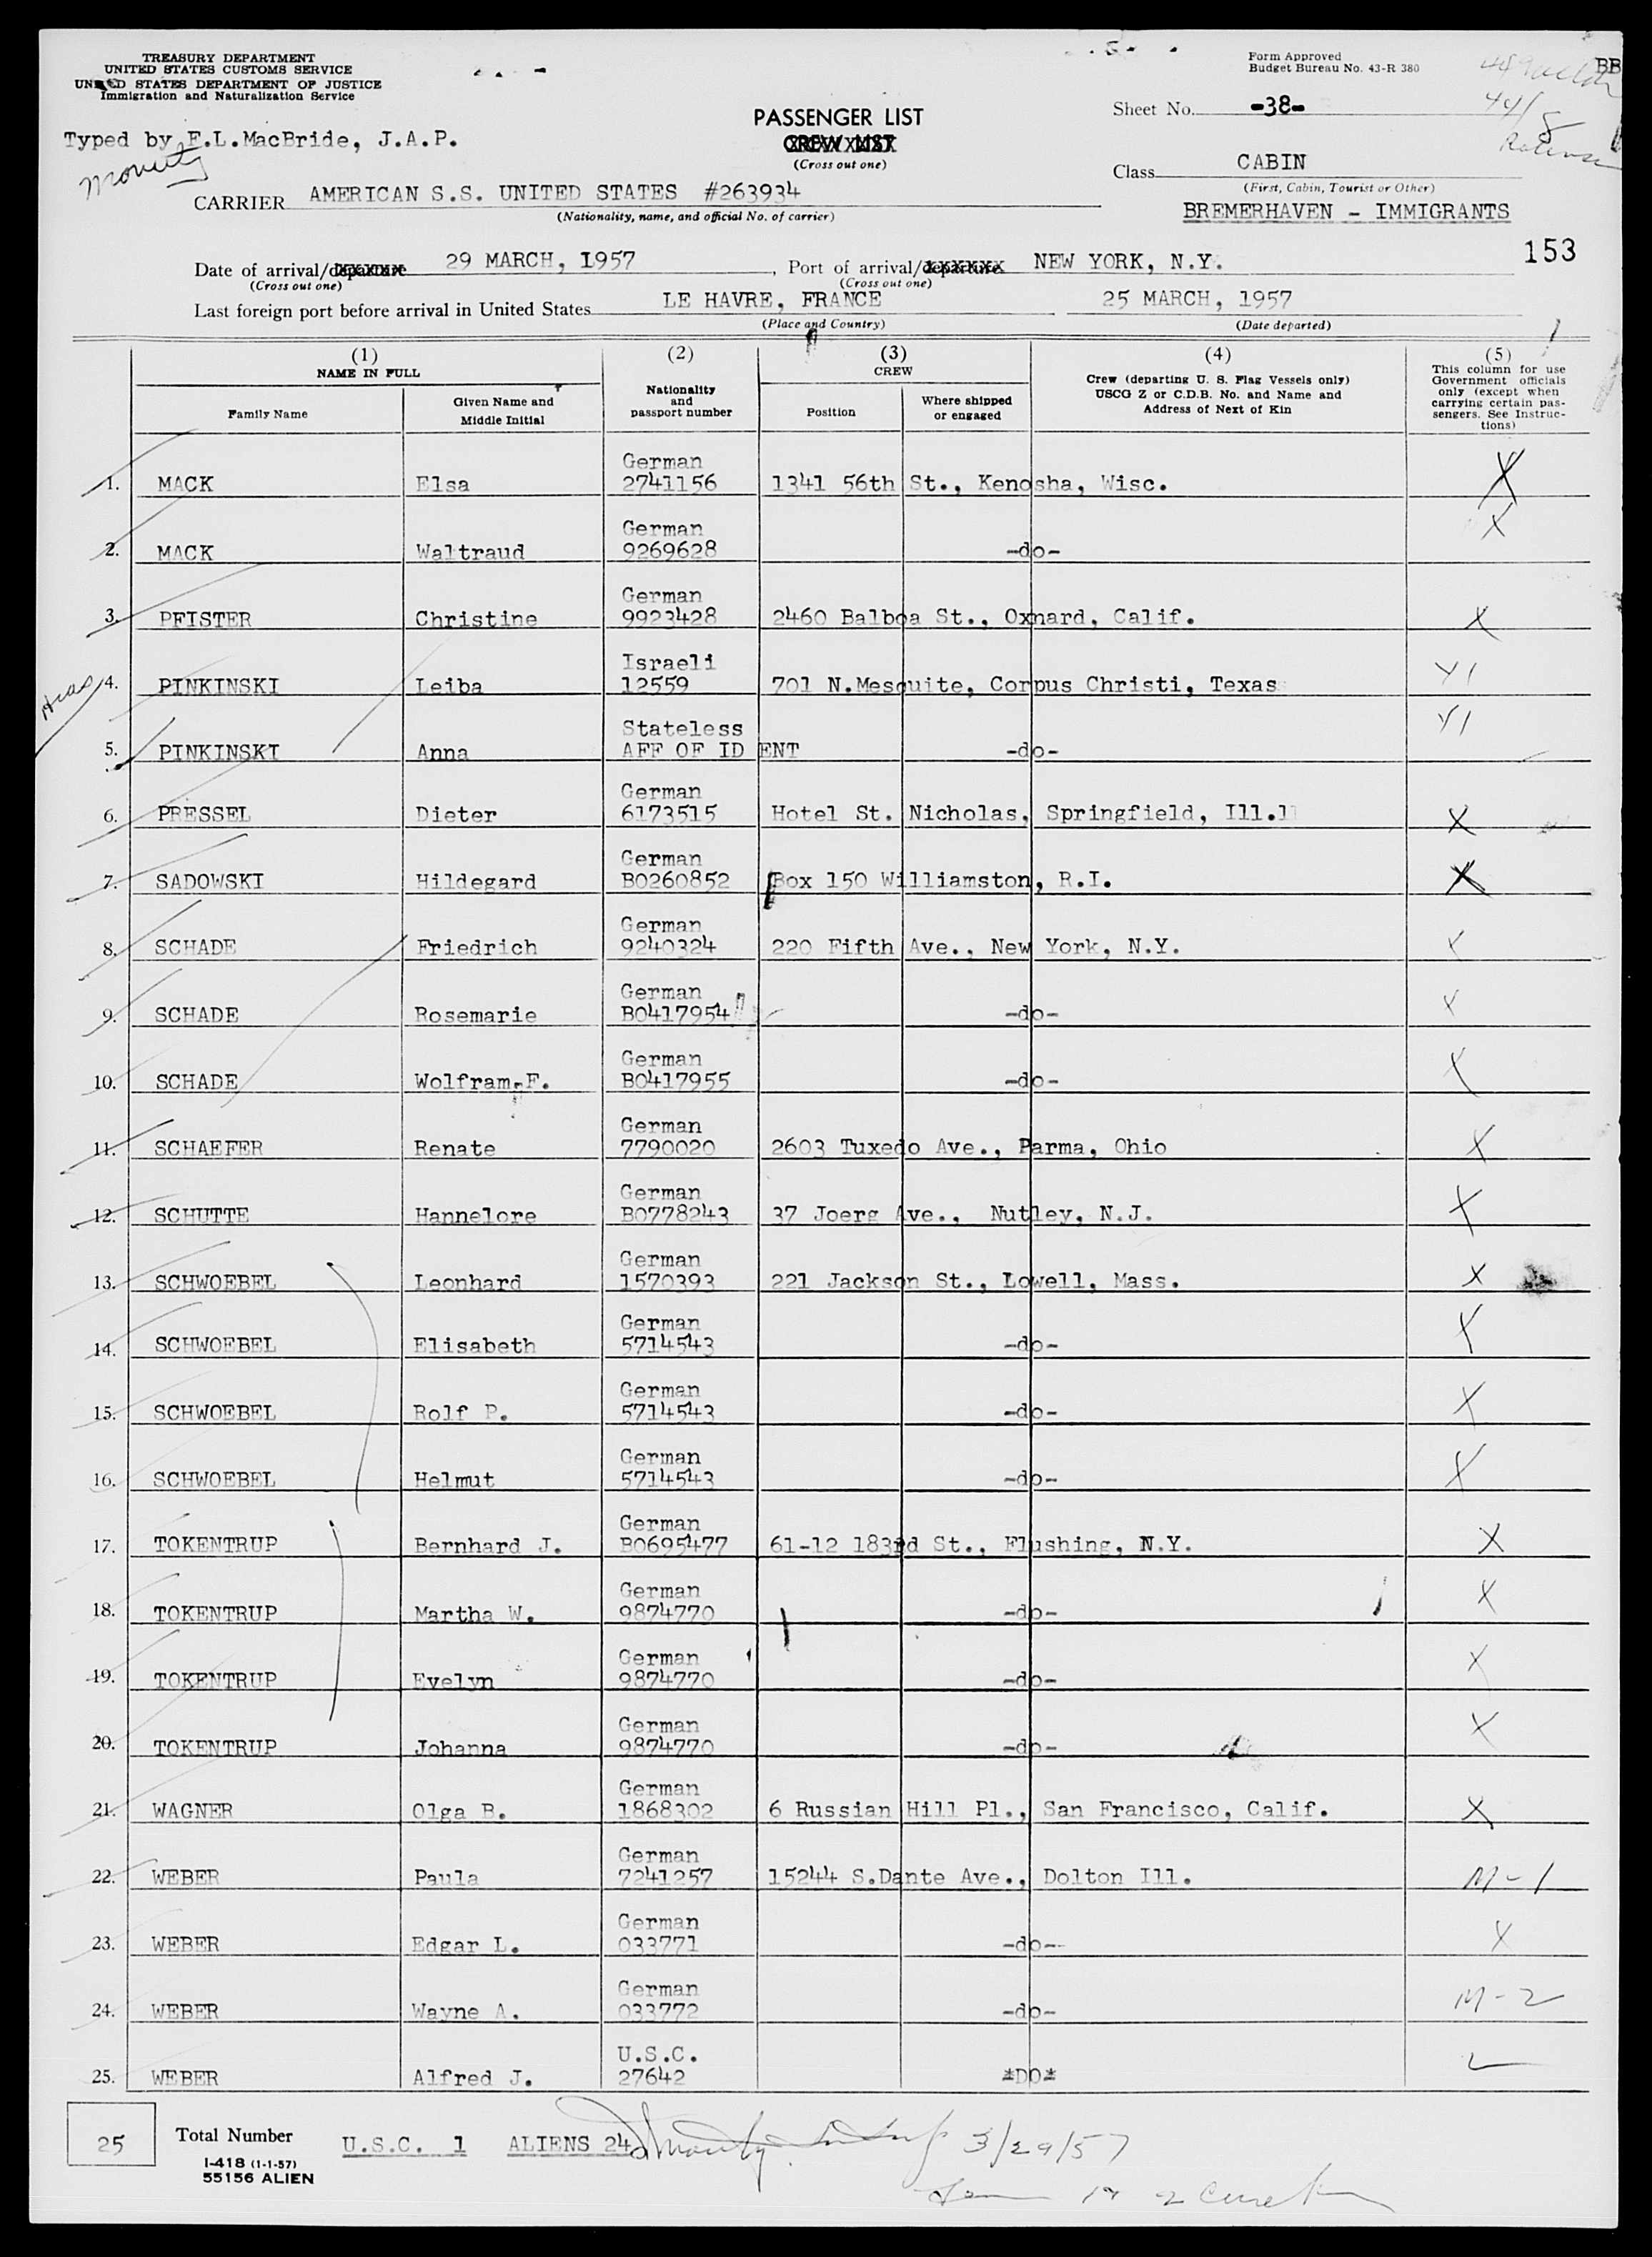 TREASURY DEPARTMENT
UNITED STATES CUSTOMS SERVICE
UNITED STATES DEPARTMENT OF JUSTICE
Immigration and Naturalization Service
Form Approved
Budget Bureau No. 43-R 380
BB
Typed by F.L.MacBride, J.A.P.
PASSENGER LIST
CREW LIST
(Cross out one)
Sheet No. -38-
Class CABIN
(First, Cabin, Tourist or Other)
CARRIER AMERICAN S.S. UNITED STATES #263934
(Nationality, name, and official No. of carrier)
BREMERHAVEN - IMMIGRANTS
153
Date of arrival/departure 29 MARCH, 1957, Port of arrival/departure NEW YORK, N.Y.
(Cross out one) (Cross out one)
Last foreign port before arrival in United States LE HAVRE, FRANCE 25 MARCH, 1957
(Place and Country) (Date departed)
(1) NAME IN FULL
Family Name
Given Name and Middle Initial
(2) Nationality and passport number
(3) CREW
Position
Where shipped or engaged
(4) Crew (departing U. S. Flag Vessels only) USCG Z or C.D.B. No. and Name and Address of Next of Kin
(5) This column for use Government officials only (except when carrying certain passengers. See Instructions)
1. MACK Elsa German 2741156 1341 56th St., Kenosha, Wisc. X
2. MACK Waltraud German 9269628 -do- X
3. PFISTER Christine German 9923428 2460 Balboa St., Oxnard, Calif. X
4. PINKINSKI Leiba Israeli 12559 701 N.Mesquite, Corpus Christi, Texas
5. PINKINSKI Anna Stateless AFF OF IDENT -do-
6. PRESSEL Dieter German 6173515 Hotel St. Nicholas, Springfield, Ill.l X
7. SADOWSKI Hildegard German B0260852 Box 150 Williamston, R.I. X
8. SCHADE Friedrich German 9240324 220 Fifth Ave., New York, N.Y. X
9. SCHADE Rosemarie German B0417954 -do- X
10. SCHADE Wolfram-F. German B0417955 -do- X
11. SCHAEFER Renate German 7790020 2603 Tuxedo Ave., Parma, Ohio X
12. SCHUTTE Hannelore German B0778243 37 Joerg Ave., Nutley, N.J. X
13. SCHWOEBEL Leonhard German 1570393 221 Jackson St., Lowell, Mass. X
14. SCHWOEBEL Elisabeth German 5714543 -do- X
15. SCHWOEBEL Rolf P. German 5714543 -do- X
16. SCHWOEBEL Helmut German 5714543 -do- X
17. TOKENTRUP Bernhard J. German B0695477 61-12 183rd St., Flushing, N.Y. X
18. TOKENTRUP Martha W. German 9874770 -do- X
19. TOKENTRUP Evelyn German 9874770 -do- X
20. TOKENTRUP Johanna German 9874770 -do- X
21. WAGNER Olga B. German 1868302 6 Russian Hill Pl., San Francisco, Calif. X
22. WEBER Paula German 7241257 15244 S.Dante Ave., Dolton Ill. M-1
23. WEBER Edgar L. German 033771 -do-- X
24. WEBER Wayne A. German 033772 -do- M-2
25. WEBER Alfred J. U.S.C. 27642 *DO*
25 Total Number U.S.C. 1 ALIENS 24 3/29/57
I-418 (1-1-57)
55156 ALIEN